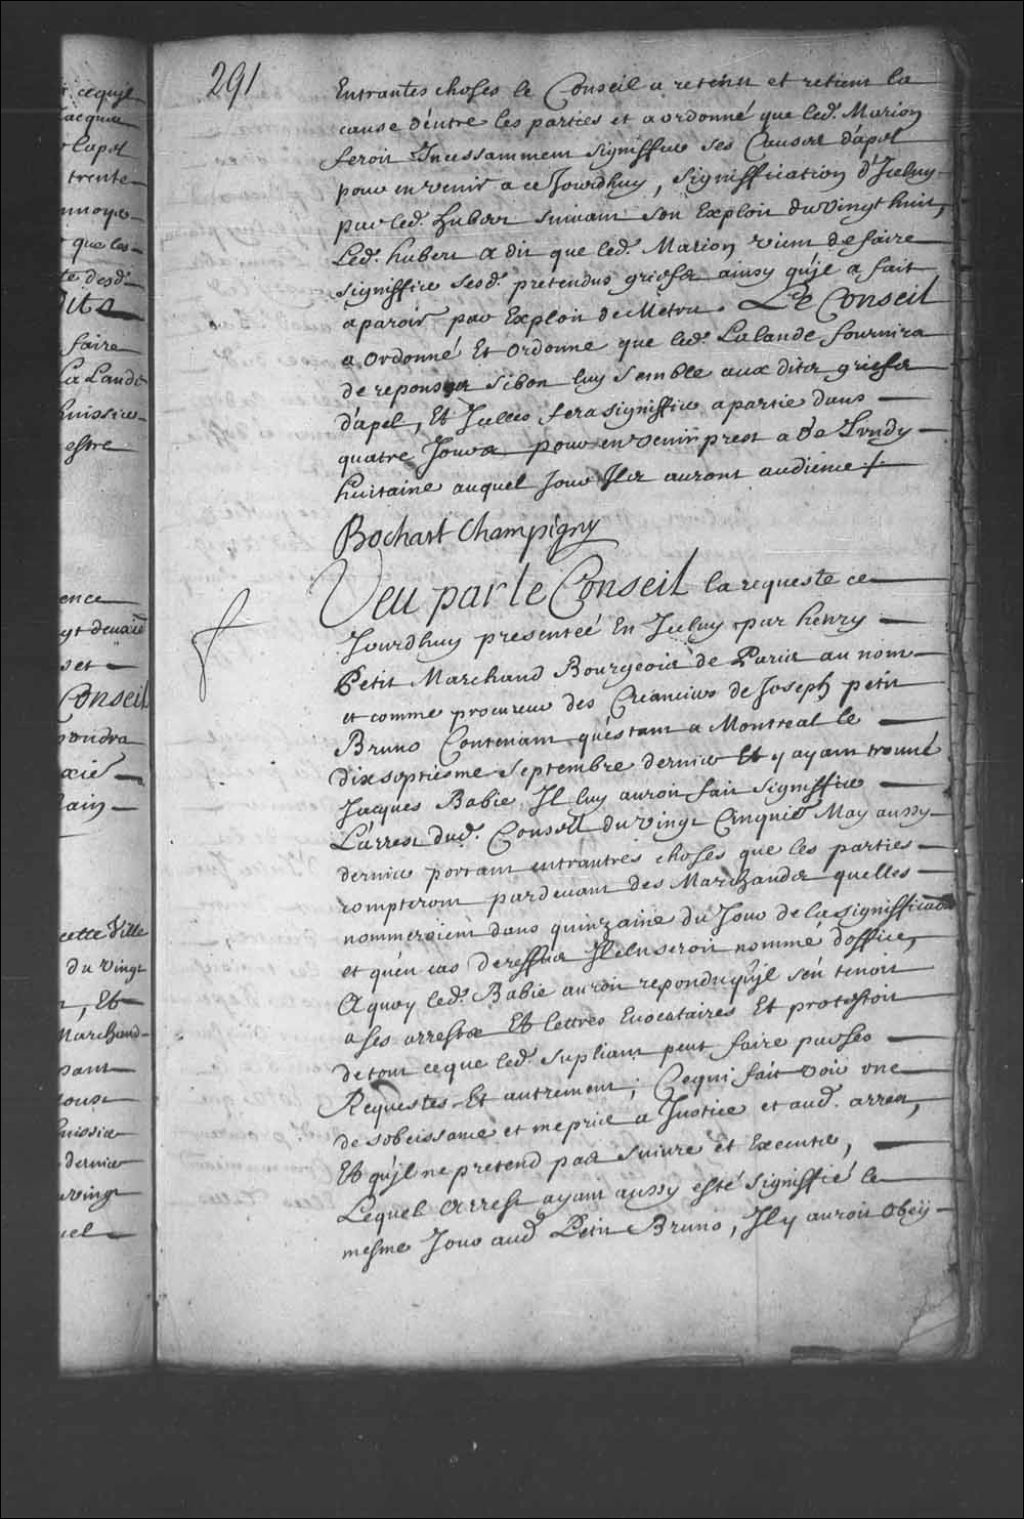 291
Entrautes choses le Conseil a retenu et retient la
cause d'entre les parties et a ordonné que led. Marion
feroit Incessamment signiffier ses Causes d'apel
pour en venir a ce Jourdhuy, signiffication d'Iceluy
par led. hubert suivant son Exploit du vingt huit,
Led. hubert a dit que led. Marion vient de faire
signiffier sesd. pretendus griefs ainsy qu'jl a fait
aparoir par Exploit de Metru. Le Conseil
a Ordonné Et Ordonne que led. Lalande fournira
de reponses sibon luy semble aux dits griefs
d'apel, Et Icelles fera signiffier a partie dans
quatre Jours pour en venir prest a de Lundy
huitaine auquel Jour Ils auront audience /.
Bochart Champigny
Veu par le Conseil la requeste ce
Jourdhuy presenteé En Iceluy par henry
Petit Marchand Bourgeois de Paris au nom
et comme procureur des Creanciers de Joseph petit
Bruno Contenant qu'estant a Montreal le
dixseptiesme Septembre dernier Et y ayant trouué
Jacques Babie, Il luy auroit fait signiffier
L'arrest dud. Conseil du vingt Cinquie May aussy
dernier portant entrautres choses que les parties
compteront pardeuant des Marchands quelles
nommeroient dans quinzaine du Jour de la signiffication
et qu'en cas de reffus Il en seroit nommé d'office,
A quoy led. Babie auroit repondu qu'jl s'en tenoit
a ses arrests Et lettres Euocatoires Et protestoit
de tout ce que led. supliant peut faire par ses
Requestes Et autrement; Ce qui fait voir vne
desobeissance et mepris a Justice et aud. arrest,
Et qu'jl ne pretend pas suiure et Executer,
Lequel Arrest ayant aussy esté signiffié le
mesme Jour aud. Petit Bruno, Il y auroit obey